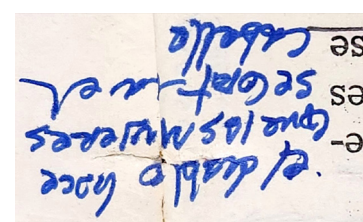 el diablo hace
que las mujeres
se cortan el
cabello